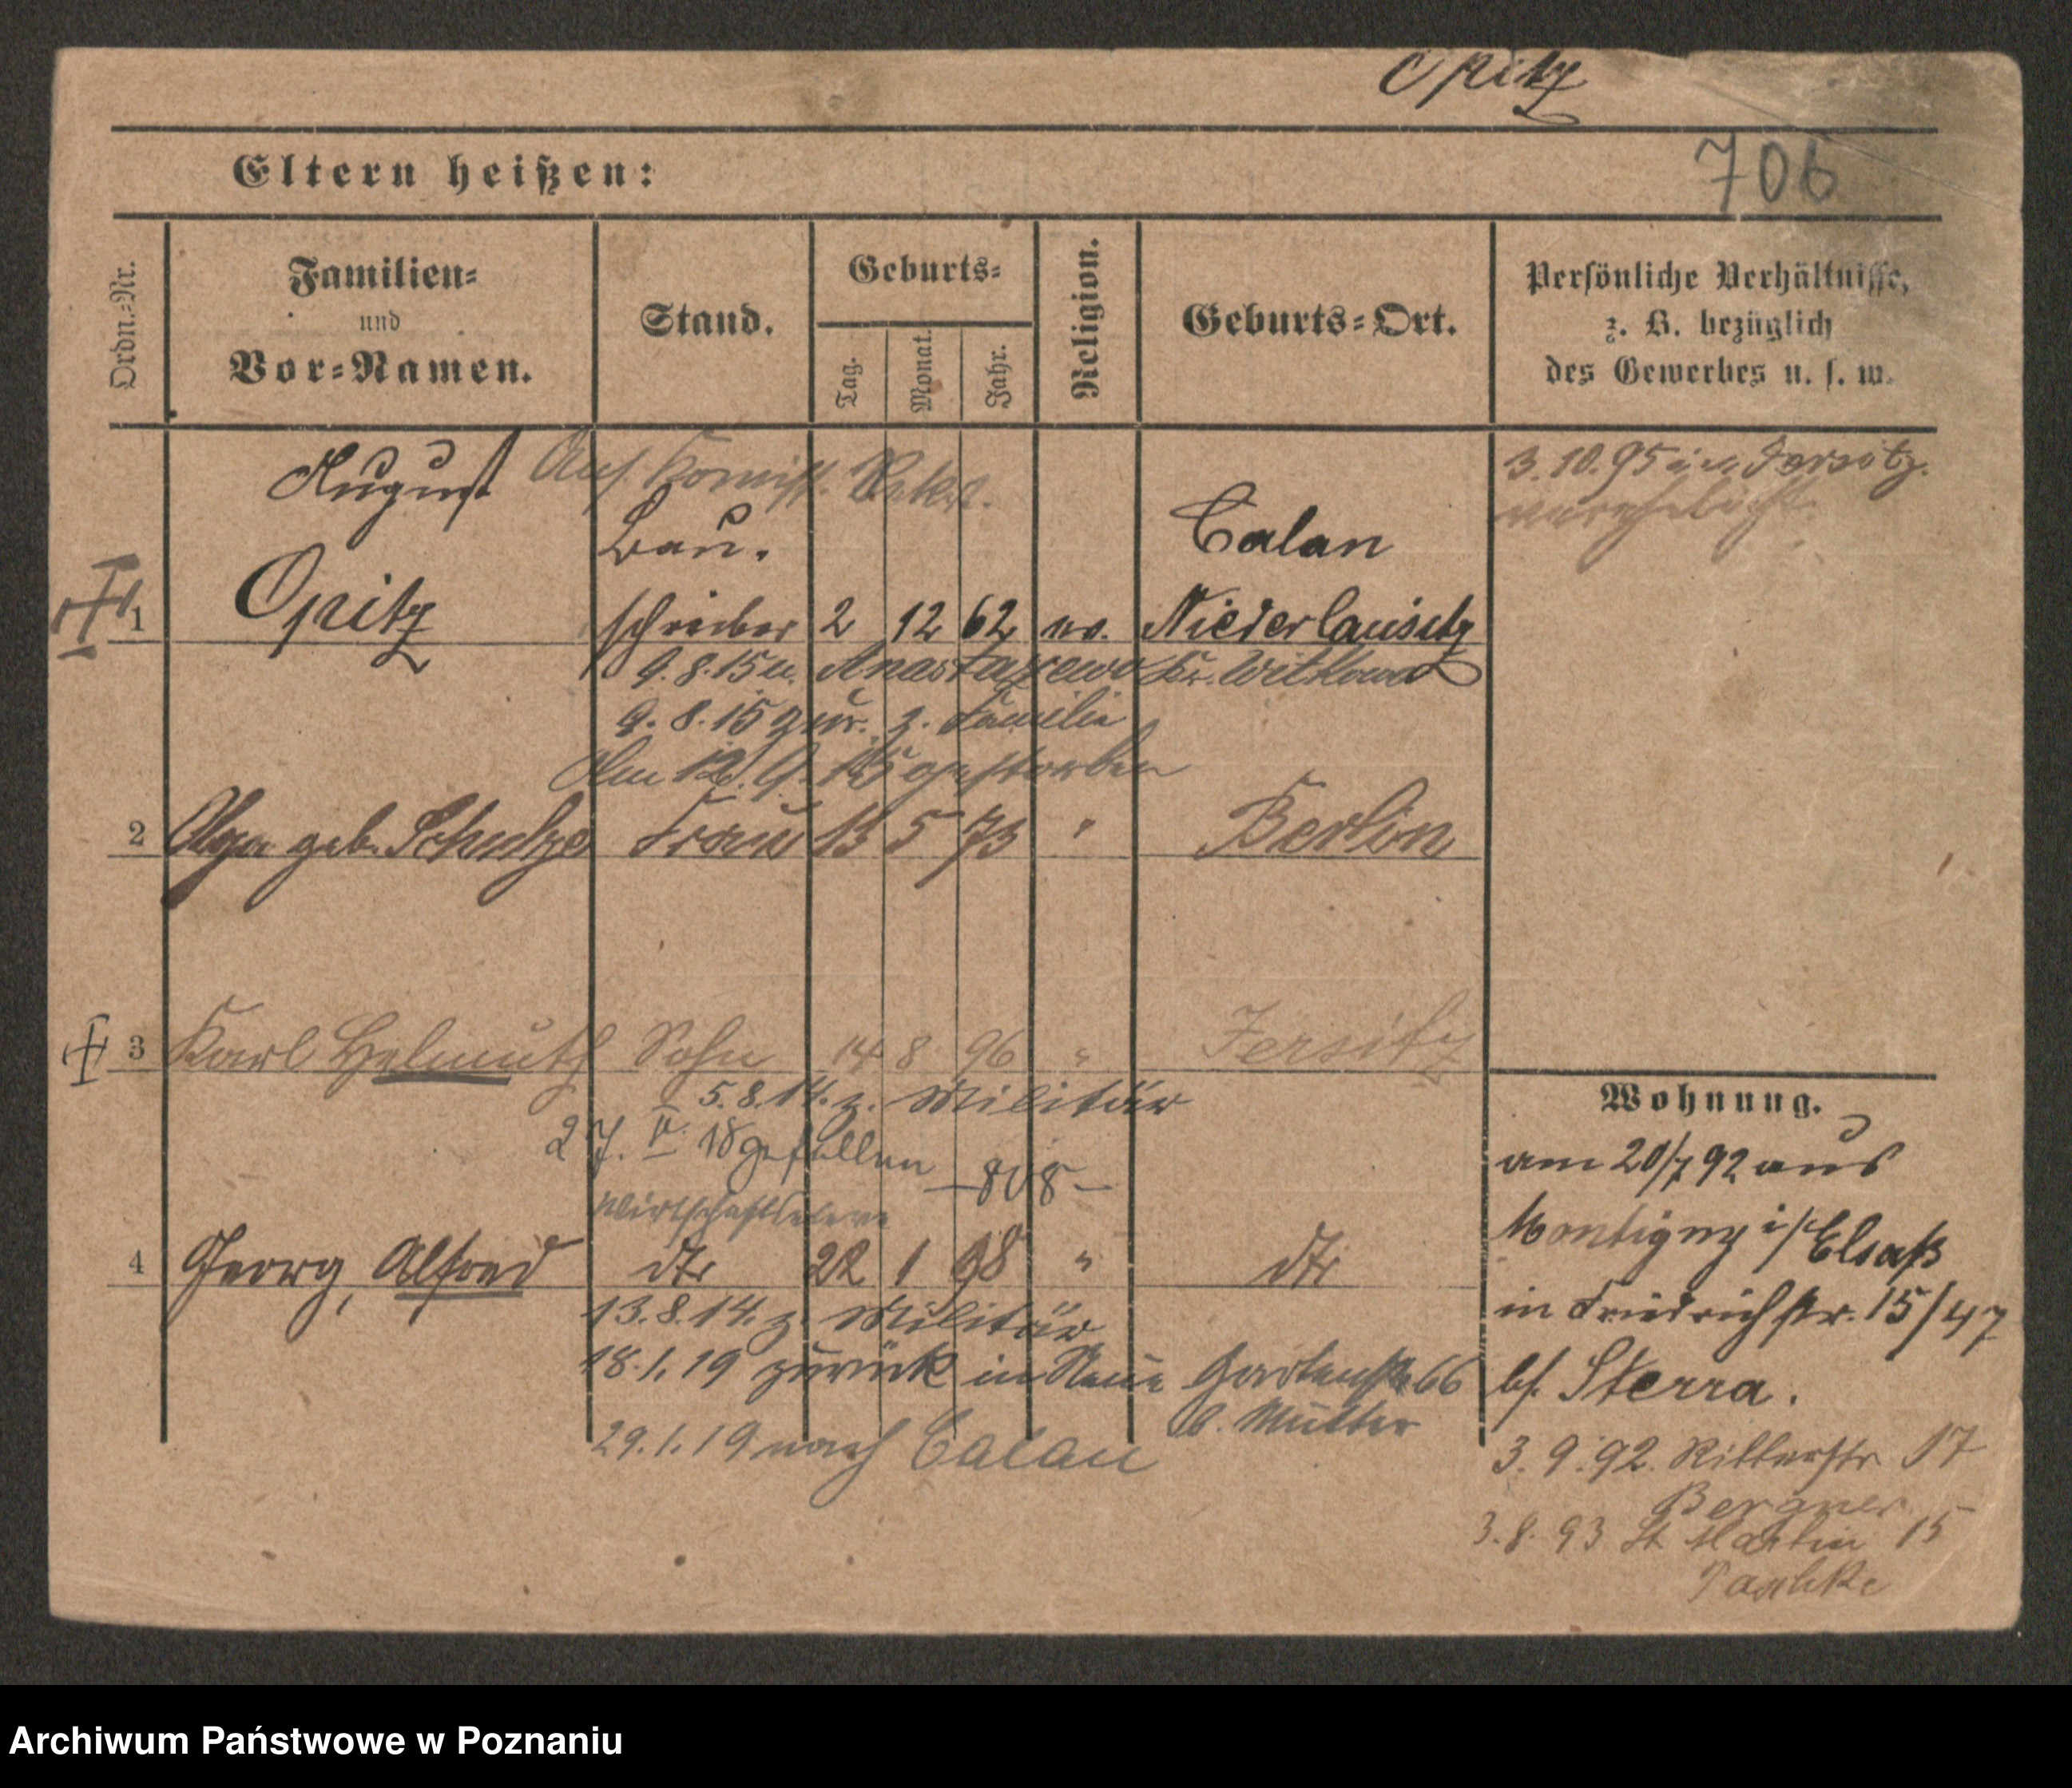 Opitz
Eltern heißen:
706
Ordn.-Nr.
Familien-
und
Vor-Namen.
Stand.
Geburts-
Tag.
Monat.
Jahr.
Religion.
Geburts-Ort.
Persönliche Verhältnisse,
z. B. bezüglich
des Gewerbes u. s. w.
August
3. 10. 95 in Jersitz
verehelicht
Bau.
Calau
1 Opitz schreiber 2 12 62 ev. Niederlausitz
9. 8. 15 u. Anastazewo Kr. Witkowo
9. 8. 15 zur. z. Familie
Am 12. 9. 15 gestorben
2 Olga geb. Schulze Frau 13 5 73 " Berlin
3 Karl Helmuth Sohn 14 8 96 " Jersitz
5. 8. 14. z. Militär
27. IV. 18 gefallen
— 808 —
Wirtschaftseleve
4 Georg, Alfred dto 22 1 98 " dto
13. 8. 14. z. Militär
18. 1. 19 zurück in Neue Gartenstr 66
b. Mutter
29. 1. 19 nach Calau
Wohnung.
am 20/7 92 aus
Montigny i/Elsaß
in Friedrichstr. 15/47
bf. Sterra.
3. 9. 92. Ritterstr 17
Bergner
3. 8. 93 St Martin 15
Archiwum Państwowe w Poznaniu